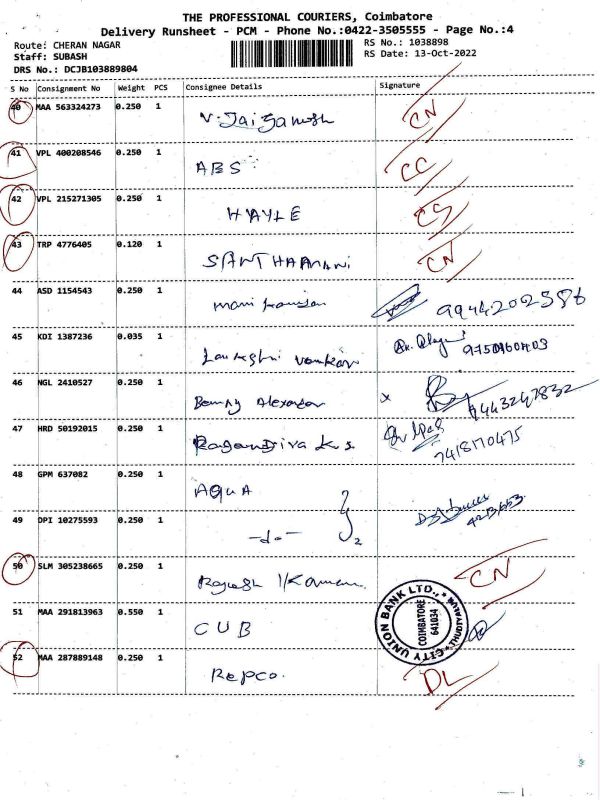 THE PROFESSIONAL COURIERS, Coimbatore
Delivery Runsheet - PCM - Phone No.:0422-3505555 - Page No.:4
Route: CHERAN NAGAR RS No.: 1038898
Staff: SUBASH RS Date: 13-Oct-2022
DRS No.: DCJB103889804
S No Consignment No Weight PCS Consignee Details Signature
40 MAA 563324273 0.250 1 V. Jaiganesh CN
41 VPL 400208546 0.250 1 ABS CC
42 VPL 215271305 0.250 1 HAYLE CS
43 TRP 4776405 0.120 1 SANTHAMANI CN
44 ASD 1154543 0.250 1 9944202586
45 KDI 1387236 0.035 1
46 NGL 2410527 0.250 1 Benny Alexander x 9443247832
47 HRD 50192015 0.250 1 7418170475
48 GPM 637082 0.250 1 AQUA
49 DPI 10275593 0.250 1 -do- 2
50 SLM 305238665 0.250 1 Rajesh CN
51 MAA 291813963 0.550 1 CUB
CITY UNION BANK LTD.,
COIMBATORE
641034
52 MAA 287889148 0.250 1 Repco. DL